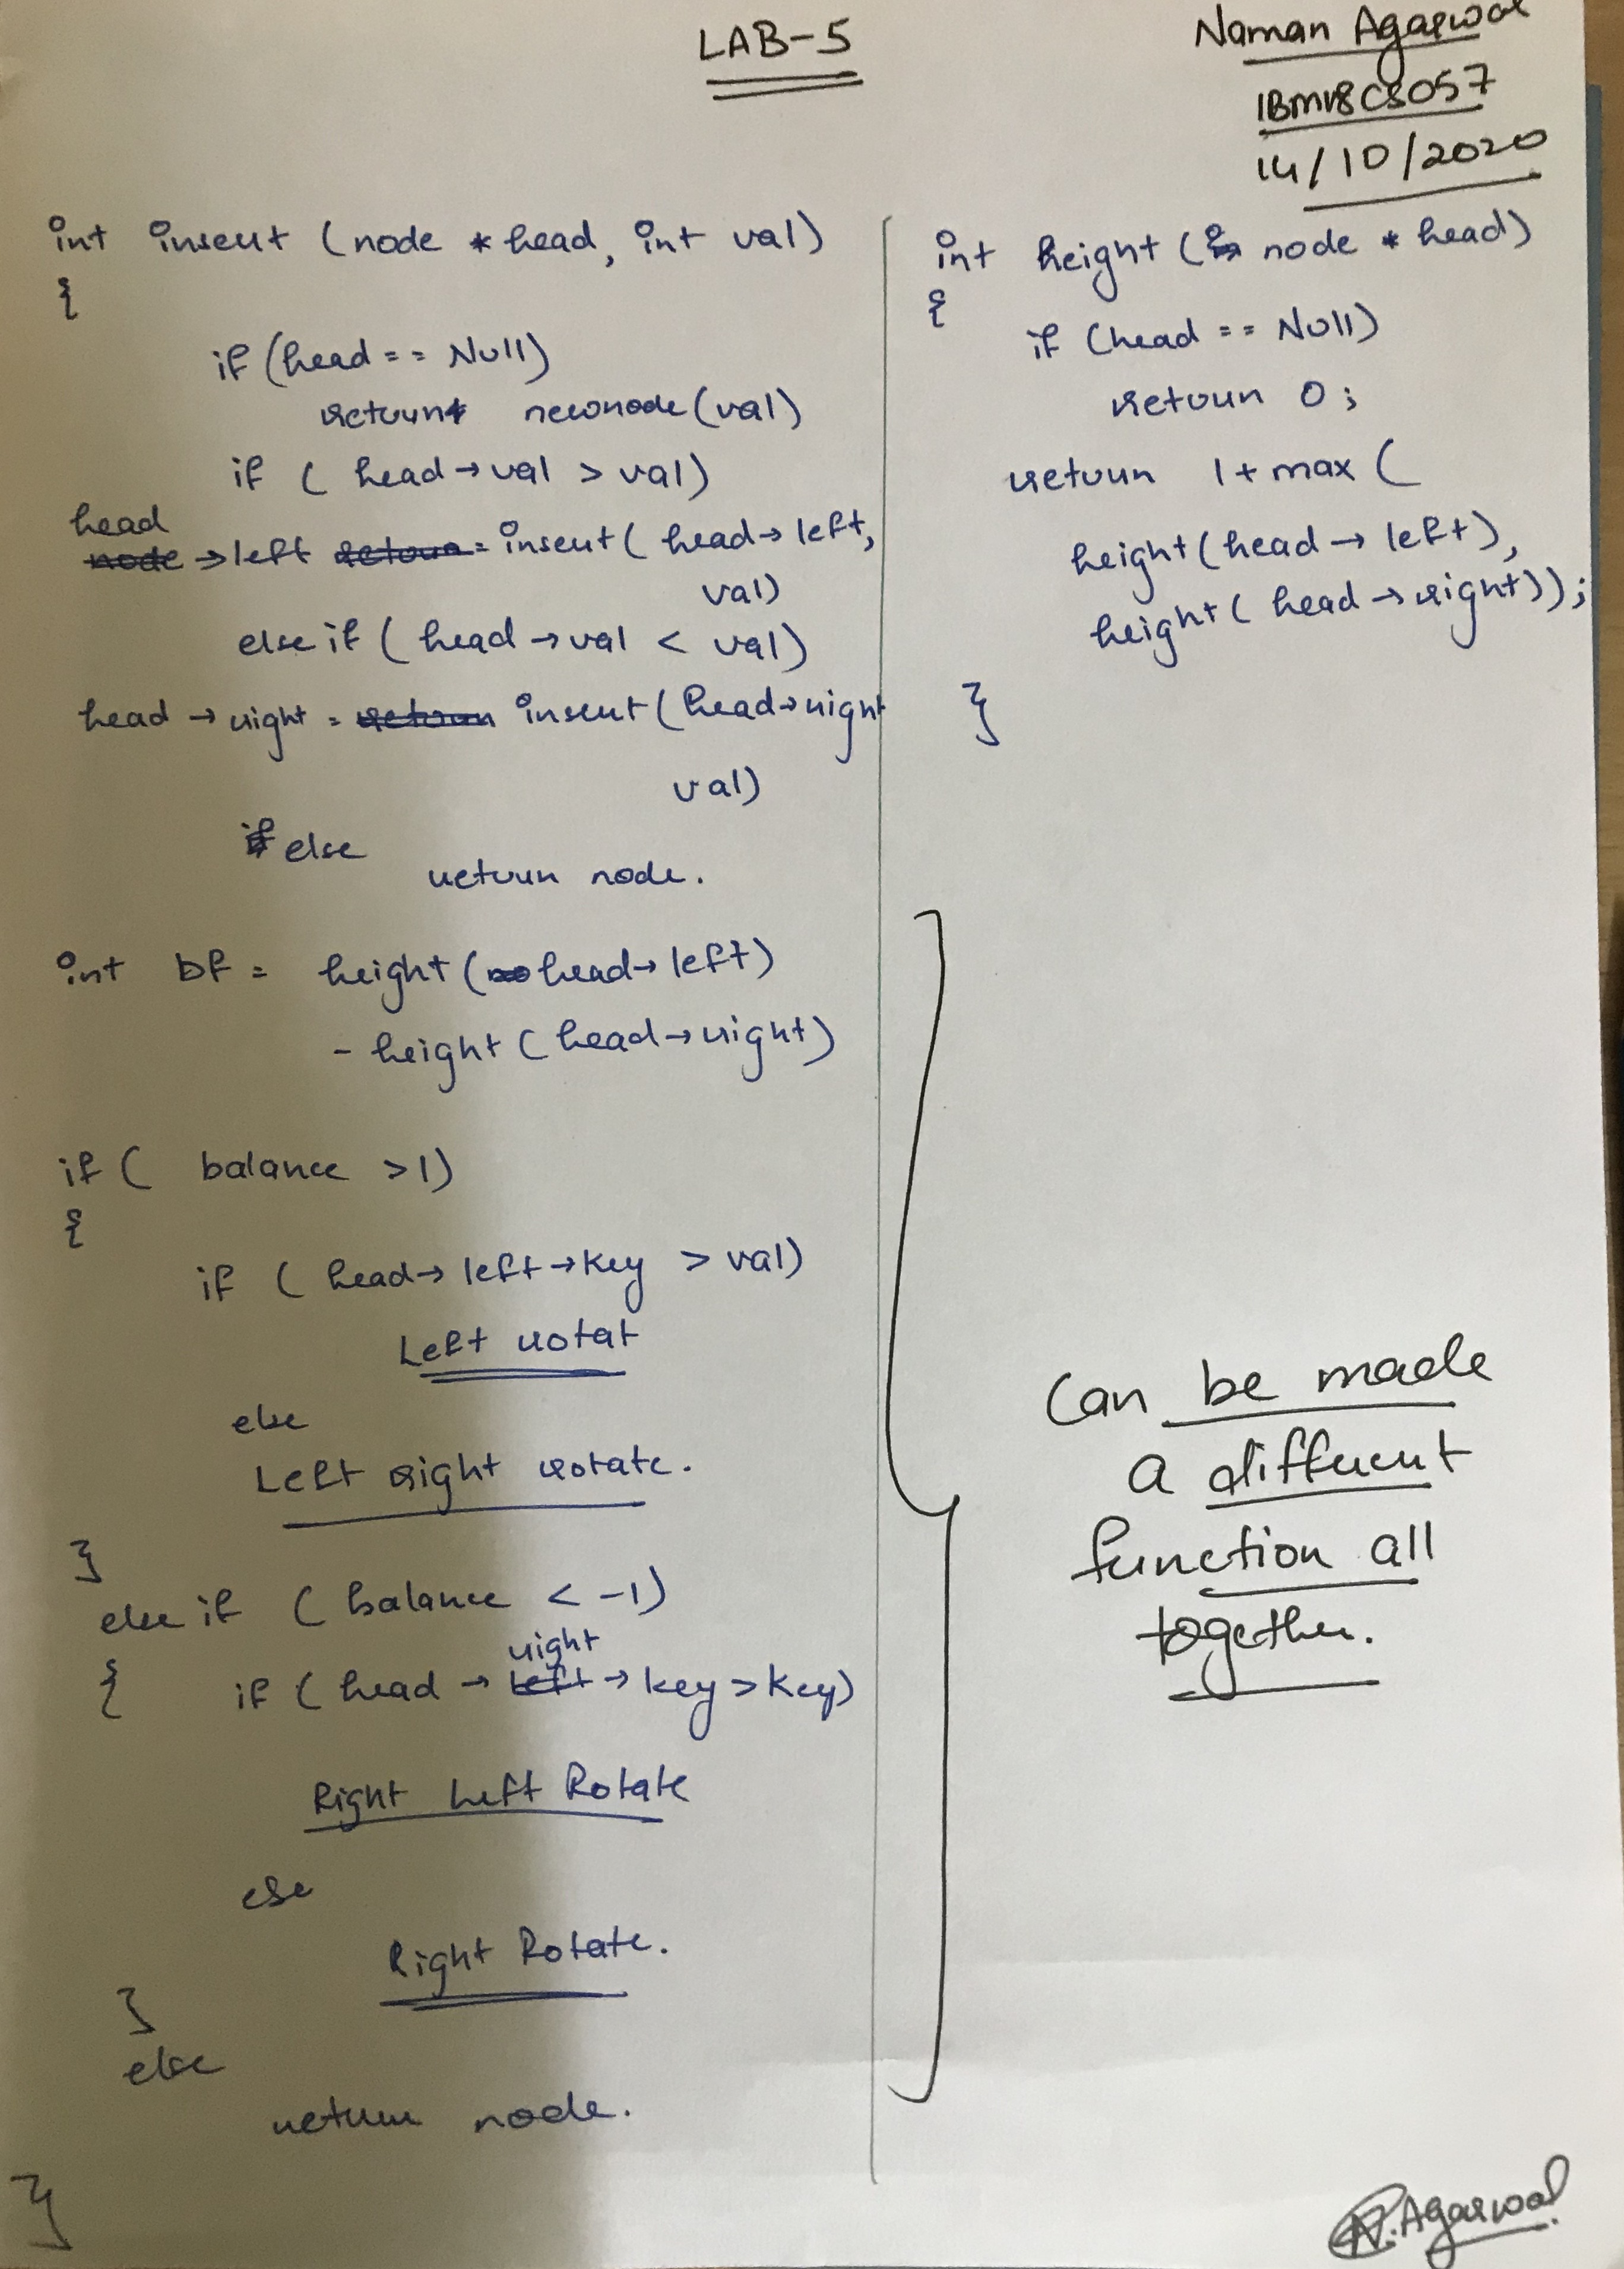 LAB-5
Naman Agarwal
1BM18CS057
14/10/2020
int insert (node * head, int val)
{
if (head == Null)
return newnode(val)
if ( head → val > val)
head
node → left return = insert( head → left,
val)
else if ( head → val < val)
head → right = return insert( head → right
val)
if else
return node.
int bf = height( no head → left)
- height ( head → right)
if ( balance > 1)
{
if ( head → left → key > val)
Left rotat
else
Left right rotate.
}
else if ( balance < -1)
right
{ if ( head → left → key > key)
Right Left Rotate
else
Right Rotate.
}
else
return node.
}
int height ( in node * head)
{
if (head == Null)
return 0;
return 1 + max (
height(head → left),
height( head → right));
}
Can be made
a different
function all
together.
N. Agarwal